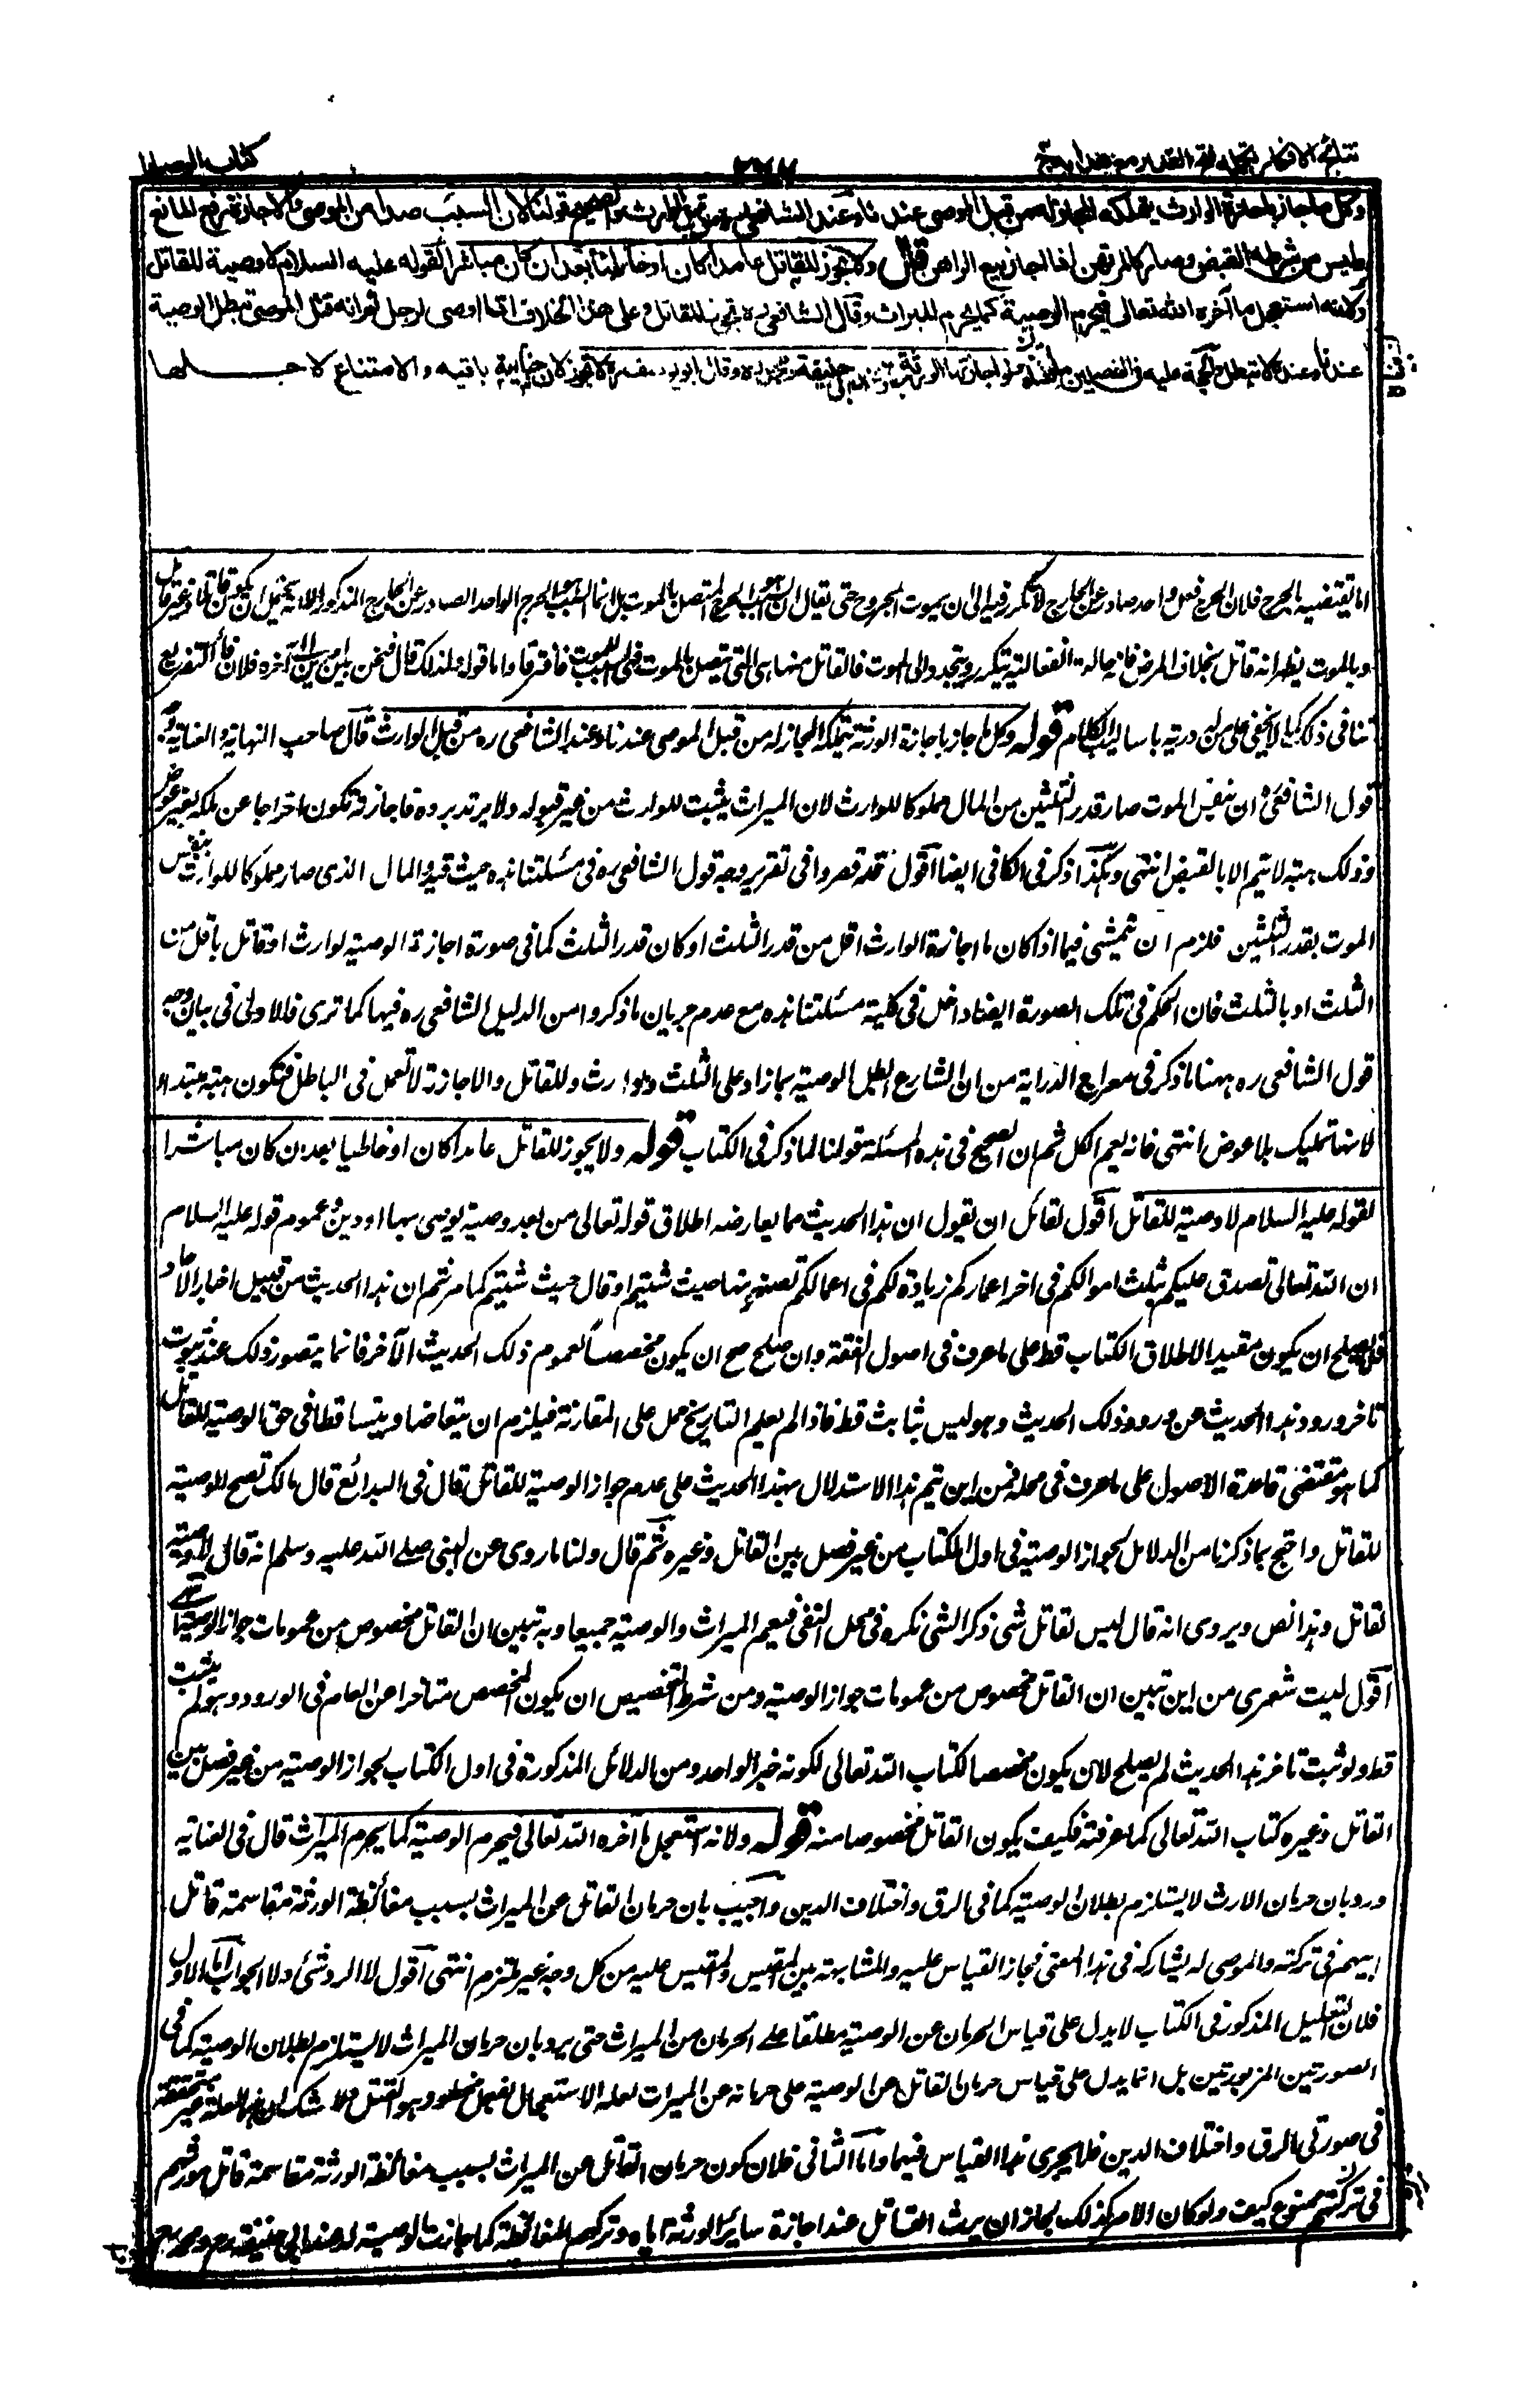 نتائج الافكار تكملة فتح القدير مع هداية ج
كتاب الوصايا
وكل ما جاز باجازة الوارث يتملكه المجاز له من قبل الموصى عندنا وعند الشافعي من قبل الوارث والصحيح قولنا لان السبب صدر من الموصى والاجازة رفع المانع
وليس من شرطه القبض وصار كالمرتهن اذا اجاز بيع الراهن قال ولا تجوز للقاتل عامدا كان او خاطئا بعد ان كان مباشرا لقوله عليه السلام لا وصية للقاتل
ولانه استعجل ما اخره الله تعالى فيحرم الوصية كما يحرم الميراث وقال الشافعي ره تجوز للقاتل وعلى هذا الخلاف اذا اوصى لرجل ثم انه قتل الموصى تبطل الوصية
عندنا وعنده لا تبطل والحجة عليه في الفصلين ما بيناه ولو اجازتها الورثة جاز عند ابي حنيفة ومحمد ره وقال ابو يوسف ره لا تجوز لان جنايته باقيه والامتناع لاجلها
المتصل بالموت بل انما السبب هو الجرح الواحد الصادر عن الجارح المذكور
وبالموت يظهر انه قاتل بخلاف المرض فانه حالة انفعالية تتكرر وتتجدد الى الموت فالقاتل منها هي التي تتصل بالموت
تنافى ذلك كما لا يخفى على من له دربة باساليب الكلام قوله وكل ما جاز باجازة الورثة يتملكه المجاز له من قبل الموصى عندنا وعند الشافعي ره من قبل الوارث قال صاحب النهاية والعناية وجه
قول الشافعي ان بنفس الموت صار قدر الثلثين من المال مملوكا للوارث لان الميراث يثبت للوارث من غير قبوله ولا يرتد برده فاجازته تكون اخراجا عن ملكه بغير عوض
وذلك هبة لا تتم الا بالقبض انتهى وهكذا ذكر في الكافي ايضا اقول قد قصروا في تقرير وجه قول الشافعي ره في مسئلتنا هذه حيث قيدوا المال الذي صار مملوكا للوارث بنفس
الموت بقدر الثلثين فلزم ان يتمشى فيما اذا كان ما اجازه الوارث اقل من قدر الثلث او كان قدر الثلث كما في صورة اجازة الوصية لوارث او قاتل باقل من
الثلث او بالثلث فان الحكم في تلك الصورة ايضا داخل في كلية مسئلتنا هذه مع عدم جريان ما ذكروا من الدليل للشافعي ره فيها كما ترى فالاولى في بيان وجه
قول الشافعي ره ههنا ما ذكر في معراج الدراية من ان الشارع ابطل الوصية بما زاد على الثلث وللوارث وللقاتل والاجازة لا تعمل في الباطل فتكون هبة مبتدأة
لانها تمليك بلا عوض انتهى فانه يعم الكل ثم ان الصحيح في هذه المسئلة قولنا لما ذكر في الكتاب قوله ولا يجوز للقاتل عامدا كان او خاطيا بعد ان كان مباشرا
لقوله عليه السلام لا وصية للقاتل اقول لقائل ان يقول ان هذا الحديث مما يعارضه اطلاق قوله تعالى من بعد وصية يوصى بها او دين وعموم قوله عليه السلام
ان الله تعالى تصدق عليكم بثلث اموالكم في اخر اعماركم زيادة لكم في اعمالكم تضعونها حيث شئتم او قال حيث شئتم كما مر ثم ان هذا الحديث من قبيل اخبار الآحاد
فلا يصلح ان يكون مقيدا لاطلاق الكتاب قط على ما عرف في اصول الفقه وان صلح صح ان يكون مخصصا لعموم ذلك الحديث الآخر فانما يتصور ذلك عند ثبوت
تاخر ورود هذا الحديث عن ورود ذلك الحديث وهو ليس بثابت قط فاذا لم يعلم التاريخ حمل على المقارنة فيلزم ان يتعارضا ويتساقطا في حق الوصية للقاتل
كما هو مقتضى قاعدة الاصول على ما عرف في محله فمن اين يتم هذا الاستدلال بهذا الحديث على عدم جواز الوصية للقاتل قال في البدائع قال مالك تصح الوصية
للقاتل واحتج بما ذكرنا من الدلائل لجواز الوصية في اول الكتاب من غير فصل بين القاتل وغيره ثم قال ولنا ما روى عن النبي صلى الله عليه وسلم انه قال لا وصية
لقاتل وهذا نص ويروى انه قال ليس لقاتل شئ ذكر الشئ نكرة في محل النفي فيعم الميراث والوصية جميعا وبه تبين ان القاتل مخصوص من عمومات جواز الوصية
اقول ليت شعري من اين تبين ان القاتل مخصوص من عمومات جواز الوصية ومن شرط التخصيص ان يكون المخصص متاخرا عن العام في الورود وهو لم يثبت
قط ولو ثبت تاخر هذا الحديث لم يصلح لان يكون مخصصا لكتاب الله تعالى لكونه خبر الواحد ومن الدلائل المذكورة في اول الكتاب لجواز الوصية من غير فصل بين
القاتل وغيره كتاب الله تعالى كما عرفته فكيف يكون القاتل مخصوصا منه قوله ولانه استعجل ما اخره الله تعالى فيحرم الوصية كما يحرم الميراث قال في العناية
ورد بان حرمان الارث لا يستلزم بطلان الوصية كما في الرق واختلاف الدين واجيب بان حرمان القاتل عن الميراث بسبب مغائظة الورثة مقاسمة قاتل
ابيهم في تركته والموصى له يشاركه في هذا المعنى فجاز القياس عليه والمشابهة بين المقيس والمقيس عليه من كل وجه غير ملتزم انتهى اقول لا الرد شئ ولا الجواب اما الاول
فلان التعليل المذكور في الكتاب لا يدل على قياس الحرمان عن الوصية مطلقا على الحرمان من الميراث حتى يرد بان حرمان الميراث لا يستلزم بطلان الوصية كما في
الصورتين المزبورتين بل انما يدل على قياس حرمان القاتل عن الوصية على حرمانه عن الميراث لعلة الاستعجال بفعل محظور وهو القتل ولا شك ان هذه العلة غير متحققة
في صورتي الرق واختلاف الدين فلا يجري هذا القياس فيهما واما الثاني فلان كون حرمان القاتل عن الميراث بسبب مغائظة الورثة مقاسمة قاتل مورثهم
في تركتهم ممنوع كيف ولو كان الامر كذلك لجاز ان يرث القاتل عند اجازة سائر الورثة اياه وتركهم المغائظة كما جازت الوصية له عند ابي حنيفة ره ومحمد